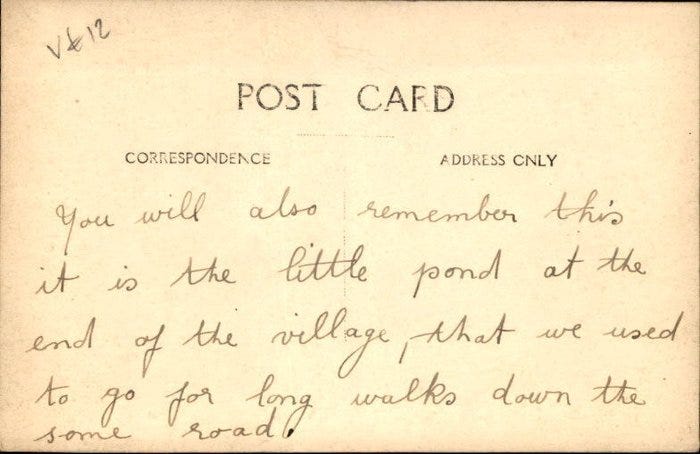 V£12
POST CARD
CORRESPONDENCE
ADDRESS ONLY
You will also remember this
it is the little pond at the
end of the village, that we used
to go for long walks down the
some road.